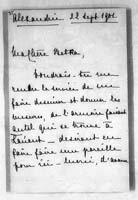 Alexandrie 22 Sept. 1901.
Ma chère Netka,
Voudrais-tu me
rendre le service de me
faire dessiner et donner les
mesures, de l'armoire faisant
qui se trouve à
désirant en
faire faire une pareille
pour ici - merci, d'avance